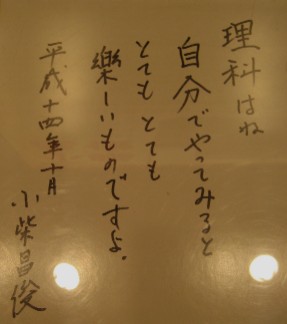 理科はね
自分でやってみると
とても とても
樂しいものですよ.
平成十四年十月
小柴昌俊